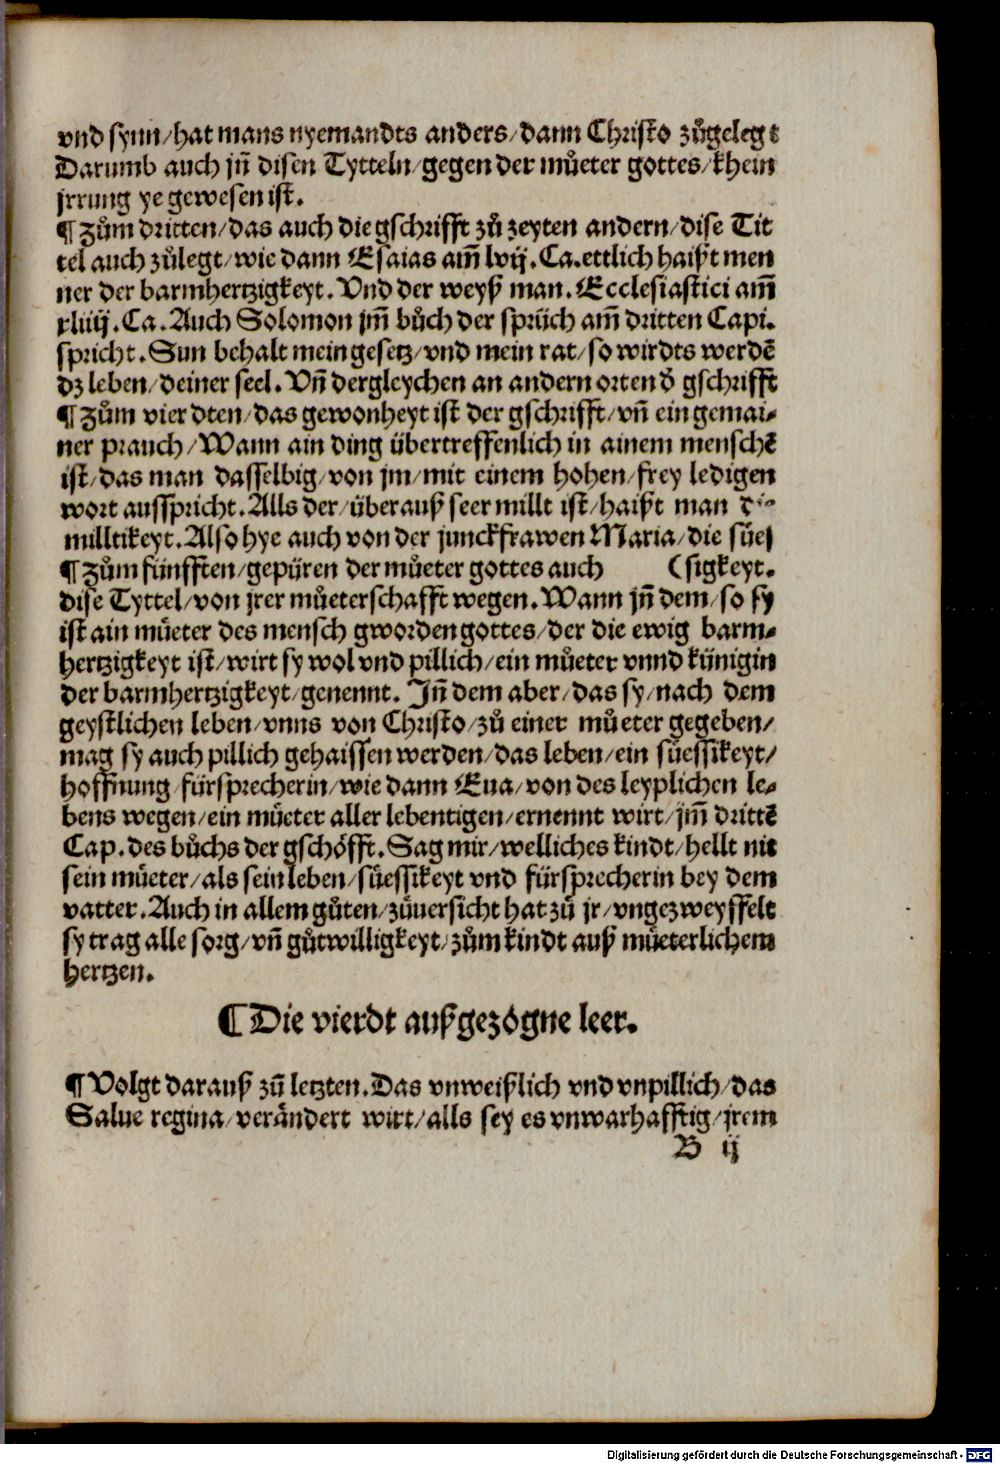 vnd synn/hat mans nyemandts anders/dann Christo zůgelegt
Darumb auch jn̄ disen Tytteln/gegen der můeter gottes/khein
jrrung ye gewesen ist.
¶Zům dritten/das auch die gschrifft zů zeyten andern/dise Tit
tel auch zůlegt/wie dann Esaias am̄ lvij. Ca. ettlich haißt men
ner der barmhertzigkeyt. Vnd der weyß man. Ecclesiastici am̄
xliiij. Ca. Auch Solomon jm̄ bůch der sprüch am̄ dritten Capi.
spricht. Sun behalt mein gesetz/vnd mein rat/so wirdts werdē
dz leben/deiner seel. Vn̄ dergleychen an andern orten đ gschrifft
¶Zům vierdten/das gewonheyt ist der gschrifft/vn̄ ein gemai⸗
ner prauch/Wann ain ding übertreffenlich in ainem menschē
ist/das man dasselbig/von jm/mit einem hohen/frey ledigen
wort ausspricht. Alls der/überauß seer millt ist/haißt man di⸗
milltikeyt. Also hye auch von der junckfrawen Maria/die süe⸗
¶Zům fünfften/gepüren der můeter gottes auch (sigkeyt.
dise Tyttel/von jrer můeterschafft wegen. Wann jn̄ dem/so sy
ist ain můeter des mensch gworden gottes/der die ewig barm⸗
hertzigkeyt ist/wirt sy wol vnd pillich/ein můeter vnnd künigin
der barmhertzigkeyt/genennt. Jn̄ dem aber/das sy/nach dem
geystlichen leben/vnns von Christo/zů einer můeter gegeben/
mag sy auch pillich gehaissen werden/das leben/ein süessikeyt/
hoffnung/fürsprecherin/wie dann Eua/von des leyplichen le⸗
bens wegen/ein můeter aller lebentigen/ernennt wirt/jm̄ drittē
Cap. des bůchs der gschöfft. Sag mir/welliches kindt/hellt nit
sein můeter/als sein leben/süessikeyt vnd fürsprecherin bey dem
vatter. Auch in allem gůten/zůuersicht hat zů jr/vngezweyffelt
sy trag alle sorg/vn̄ gůtwilligkeyt/zům kindt auß můeterlichem
hertzen.
¶Die vierdt außgezogne leer.
¶Volgt darauß zů letzten. Das vnweißlich vnd vnpillich/das
Salue regina/verändert wirt/alls sey es vnwarhafftig/jrem
B ij
Digitalisierung gefördert durch die Deutsche Forschungsgemeinschaft - DFG